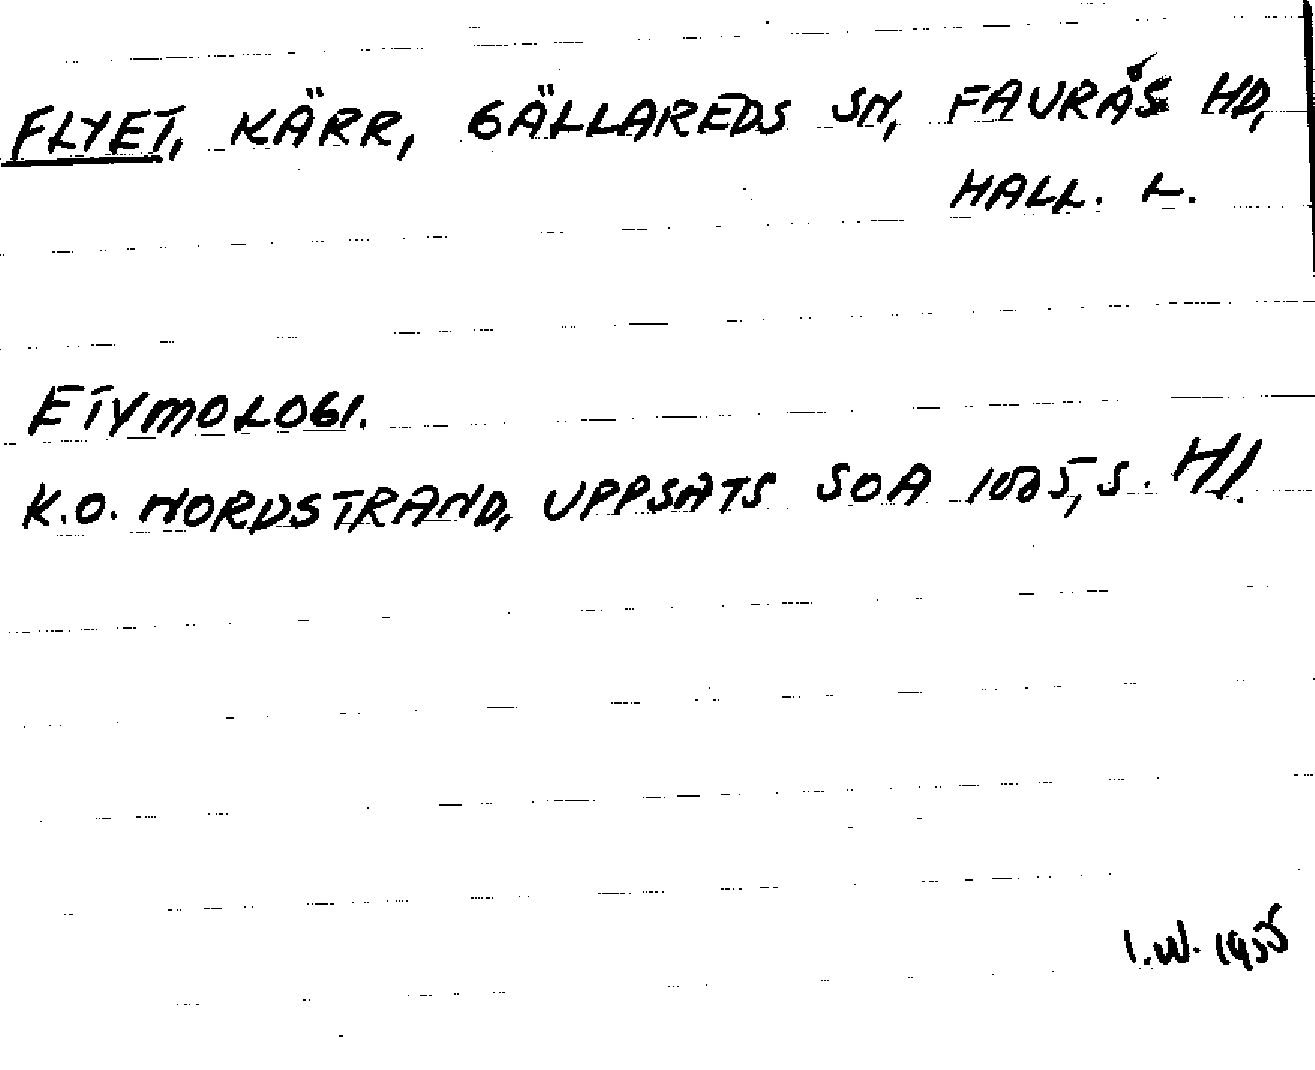 FLYET, KÄRR, GÄLLAREDS SN, FAURÅS HD,
HALL. L.
ETYMOLOGI.
K.O. NORDSTRAND, UPPSATS SOA 1025, S. 41.
I.W. 1955